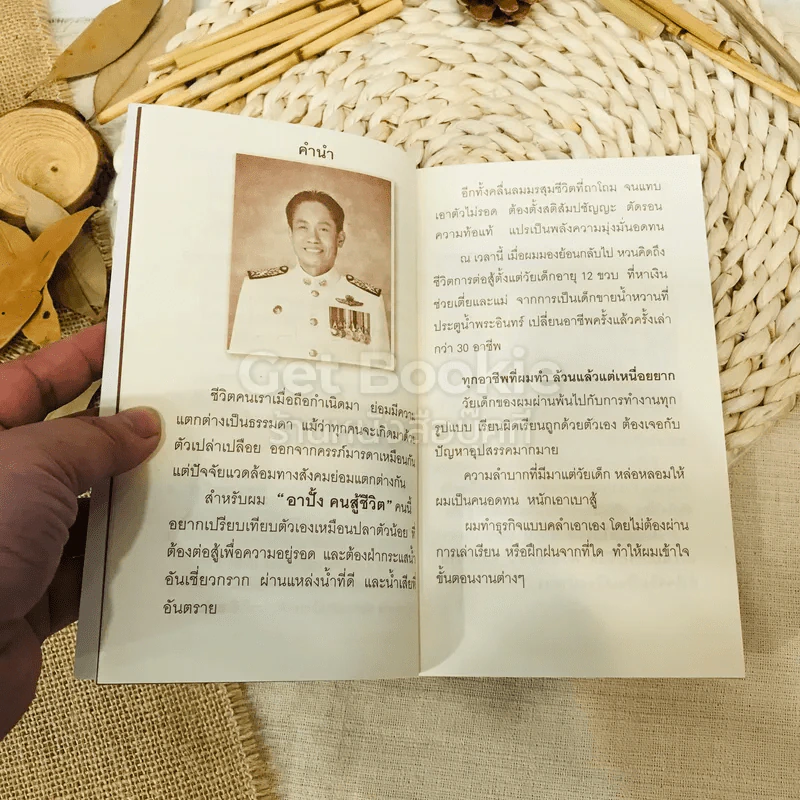 คำนำ
ชีวิตคนเราเมื่อถือกำเนิดมา ย่อมมีความ
แตกต่างเป็นธรรมดา แม้ว่าทุกคนจะเกิดมาด้วย
ตัวเปล่าเปลือย ออกจากครรภ์มารดาเหมือนกัน
แต่ปัจจัยแวดล้อมทางสังคมย่อมแตกต่างกัน
สำหรับผม "อาปั้ง คนสู้ชีวิต" คนนี้
อยากเปรียบเทียบตัวเองเหมือนปลาตัวน้อย ที่
ต้องต่อสู้เพื่อความอยู่รอด และต้องฝ่ากระแสน้ำ
อันเชี่ยวกราก ผ่านแหล่งน้ำที่ดี และน้ำเสียที่
อันตราย
อีกทั้งคลื่นลมมรสุมชีวิตที่ถาโถม จนแทบ
เอาตัวไม่รอด ต้องตั้งสติสัมปชัญญะ ตัดรอน
ความท้อแท้ แปรเป็นพลังความมุ่งมั่นอดทน
ณ เวลานี้ เมื่อผมมองย้อนกลับไป หวนคิดถึง
ชีวิตการต่อสู้ตั้งแต่วัยเด็กอายุ 12 ขวบ ที่หาเงิน
ช่วยเตี่ยและแม่ จากการเป็นเด็กขายน้ำหวานที่
ประตูน้ำพระอินทร์ เปลี่ยนอาชีพครั้งแล้วครั้งเล่า
กว่า 30 อาชีพ
ทุกอาชีพที่ผมทำ ล้วนแล้วแต่เหนื่อยยาก
วัยเด็กของผมผ่านพ้นไปกับการทำงานทุก
รูปแบบ เรียนผิดเรียนถูกด้วยตัวเอง ต้องเจอกับ
ปัญหาอุปสรรคมากมาย
ความลำบากที่มีมาแต่วัยเด็ก หล่อหลอมให้
ผมเป็นคนอดทน หนักเอาเบาสู้
ผมทำธุรกิจแบบคลำเอาเอง โดยไม่ต้องผ่าน
การเล่าเรียน หรือฝึกฝนจากที่ใด ทำให้ผมเข้าใจ
ขั้นตอนงานต่างๆ
Get Bookie
ร้านหนังสือบุ๊คกี้